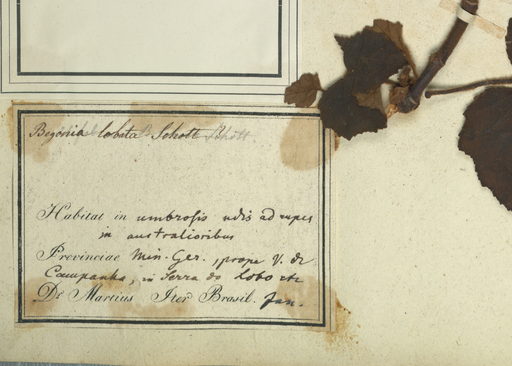 Begonia lobata Schott Schott
Habitat in umbrosis udis ad rupes
in australioribus
Provinciae Min. Ger. prope V. de
Campanha, in Serra do lobo etc
Dr Martius Iter Brasil. Jan.